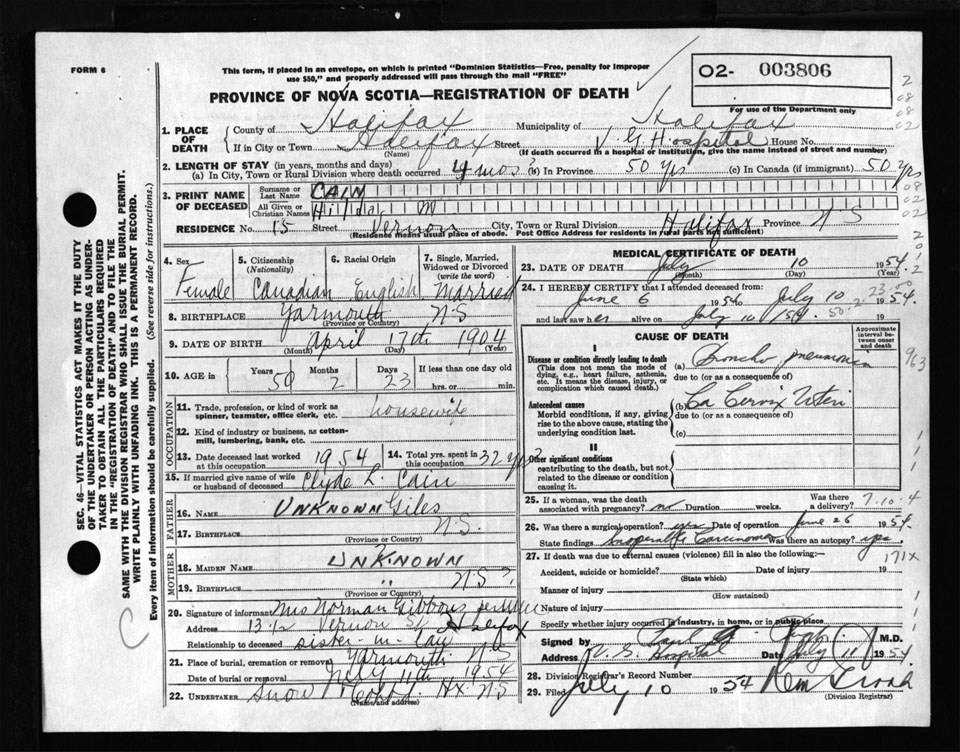 FORM 6
This form, if placed in an envelope, on which is printed "Dominion Statistics—Free, penalty for improper
use $50," and properly addressed will pass through the mail "FREE"
02- 003806
For use of the Department only
PROVINCE OF NOVA SCOTIA—REGISTRATION OF DEATH
1. PLACE OF DEATH County of Halifax Municipality of Halifax
If in City or Town Halifax Street V. G Hospital House No.
(Name) (If death occurred in a hospital or institution, give the name instead of street and number)
2. LENGTH OF STAY (in years, months and days)
(a) In City, Town or Rural Division where death occurred 4 mos (b) In Province 50 yrs (c) In Canada (if immigrant) 50 yrs
3. PRINT NAME OF DECEASED Surname or Last Name CAIN
All Given or Christian Names Hilda M
RESIDENCE No. 15 Street Vernon City, Town or Rural Division Halifax Province N S
(Residence means usual place of abode. Post Office Address for residents in rural parts not sufficient)
4. Sex Female
5. Citizenship (Nationality) Canadian
6. Racial Origin English
7. Single, Married, Widowed or Divorced (write the word) Married
8. BIRTHPLACE Yarmouth N S
(Province or Country)
9. DATE OF BIRTH April 17th 1904
(Month) (Day) (Year)
10. AGE Years 50 Months 2 Days 23 If less than one day
hrs. or min.
OCCUPATION
11. Trade, profession, or kind of work as spinner, teamster, office clerk, etc. housewife
12. Kind of industry or business, as cotton-mill, lumbering, bank, etc.
13. Date deceased last worked at this occupation 1954
14. Total yrs. spent in this occupation 32 yrs
15. If married give name of wife or husband of deceased Clyde L. Cain
FATHER
16. Name UNKNOWN Giles
17. Birthplace N.S.
(Province or Country)
MOTHER
18. Maiden Name UNKNOWN
19. Birthplace " N S ?
(Province or Country)
20. Signature of informant Mrs Norman Gibbons
Address Vernon St Halifax
Relationship to deceased sister-in-law
21. Place of burial, cremation or removal Yarmouth N S
Date of burial or removal July 11th 1954
22. UNDERTAKER Snow Hx. N S
(Name and address)
MEDICAL CERTIFICATE OF DEATH
23. DATE OF DEATH July 10 1954
(Month) (Day) (Year)
24. I HEREBY CERTIFY that I attended deceased from:
June 6 1954 to July 10 1954
and last saw her alive on July 10 1954
CAUSE OF DEATH
Approximate interval between onset and death
I
Disease or condition directly leading to death
(This does not mean the mode of dying, e.g., heart failure, asthenia, etc. It means the disease, injury, or complication which caused death.)
(a) Broncho pneumonia
due to (or as a consequence of)
Antecedent causes
Morbid conditions, if any, giving rise to the above cause, stating the underlying condition last.
(b) Ca Cervix Uteri
due to (or as a consequence of)
(c)
II
Other significant conditions
contributing to the death, but not related to the disease or condition causing it.
25. If a woman, was the death associated with pregnancy? no Duration weeks. Was there a delivery?
7.10.4
26. Was there a surgical operation? yes Date of operation June 26 1954
State findings Inoperable Carcinoma Was there an autopsy? yes
171x
27. If death was due to external causes (violence) fill in also the following:—
Accident, suicide or homicide? Date of injury 19
(State which)
Manner of injury
(How sustained)
Nature of injury
Specify whether injury occurred in industry, in home, or in public place
Signed by M.D.
Address V. G. Hospital Date July 11 1954
28. Division Registrar's Record Number
29. Filed July 10 1954
(Division Registrar)
SEC. 46—VITAL STATISTICS ACT MAKES IT THE DUTY
OF THE UNDERTAKER OR PERSON ACTING AS UNDER-
TAKER TO OBTAIN ALL THE PARTICULARS REQUIRED
IN THE "REGISTRATION OF DEATH" AND TO FILE THE
SAME WITH THE DIVISION REGISTRAR WHO SHALL ISSUE THE BURIAL PERMIT.
WRITE PLAINLY WITH UNFADING INK. THIS IS A PERMANENT RECORD.
Every item of information should be carefully supplied. (See reverse side for instructions.)
C